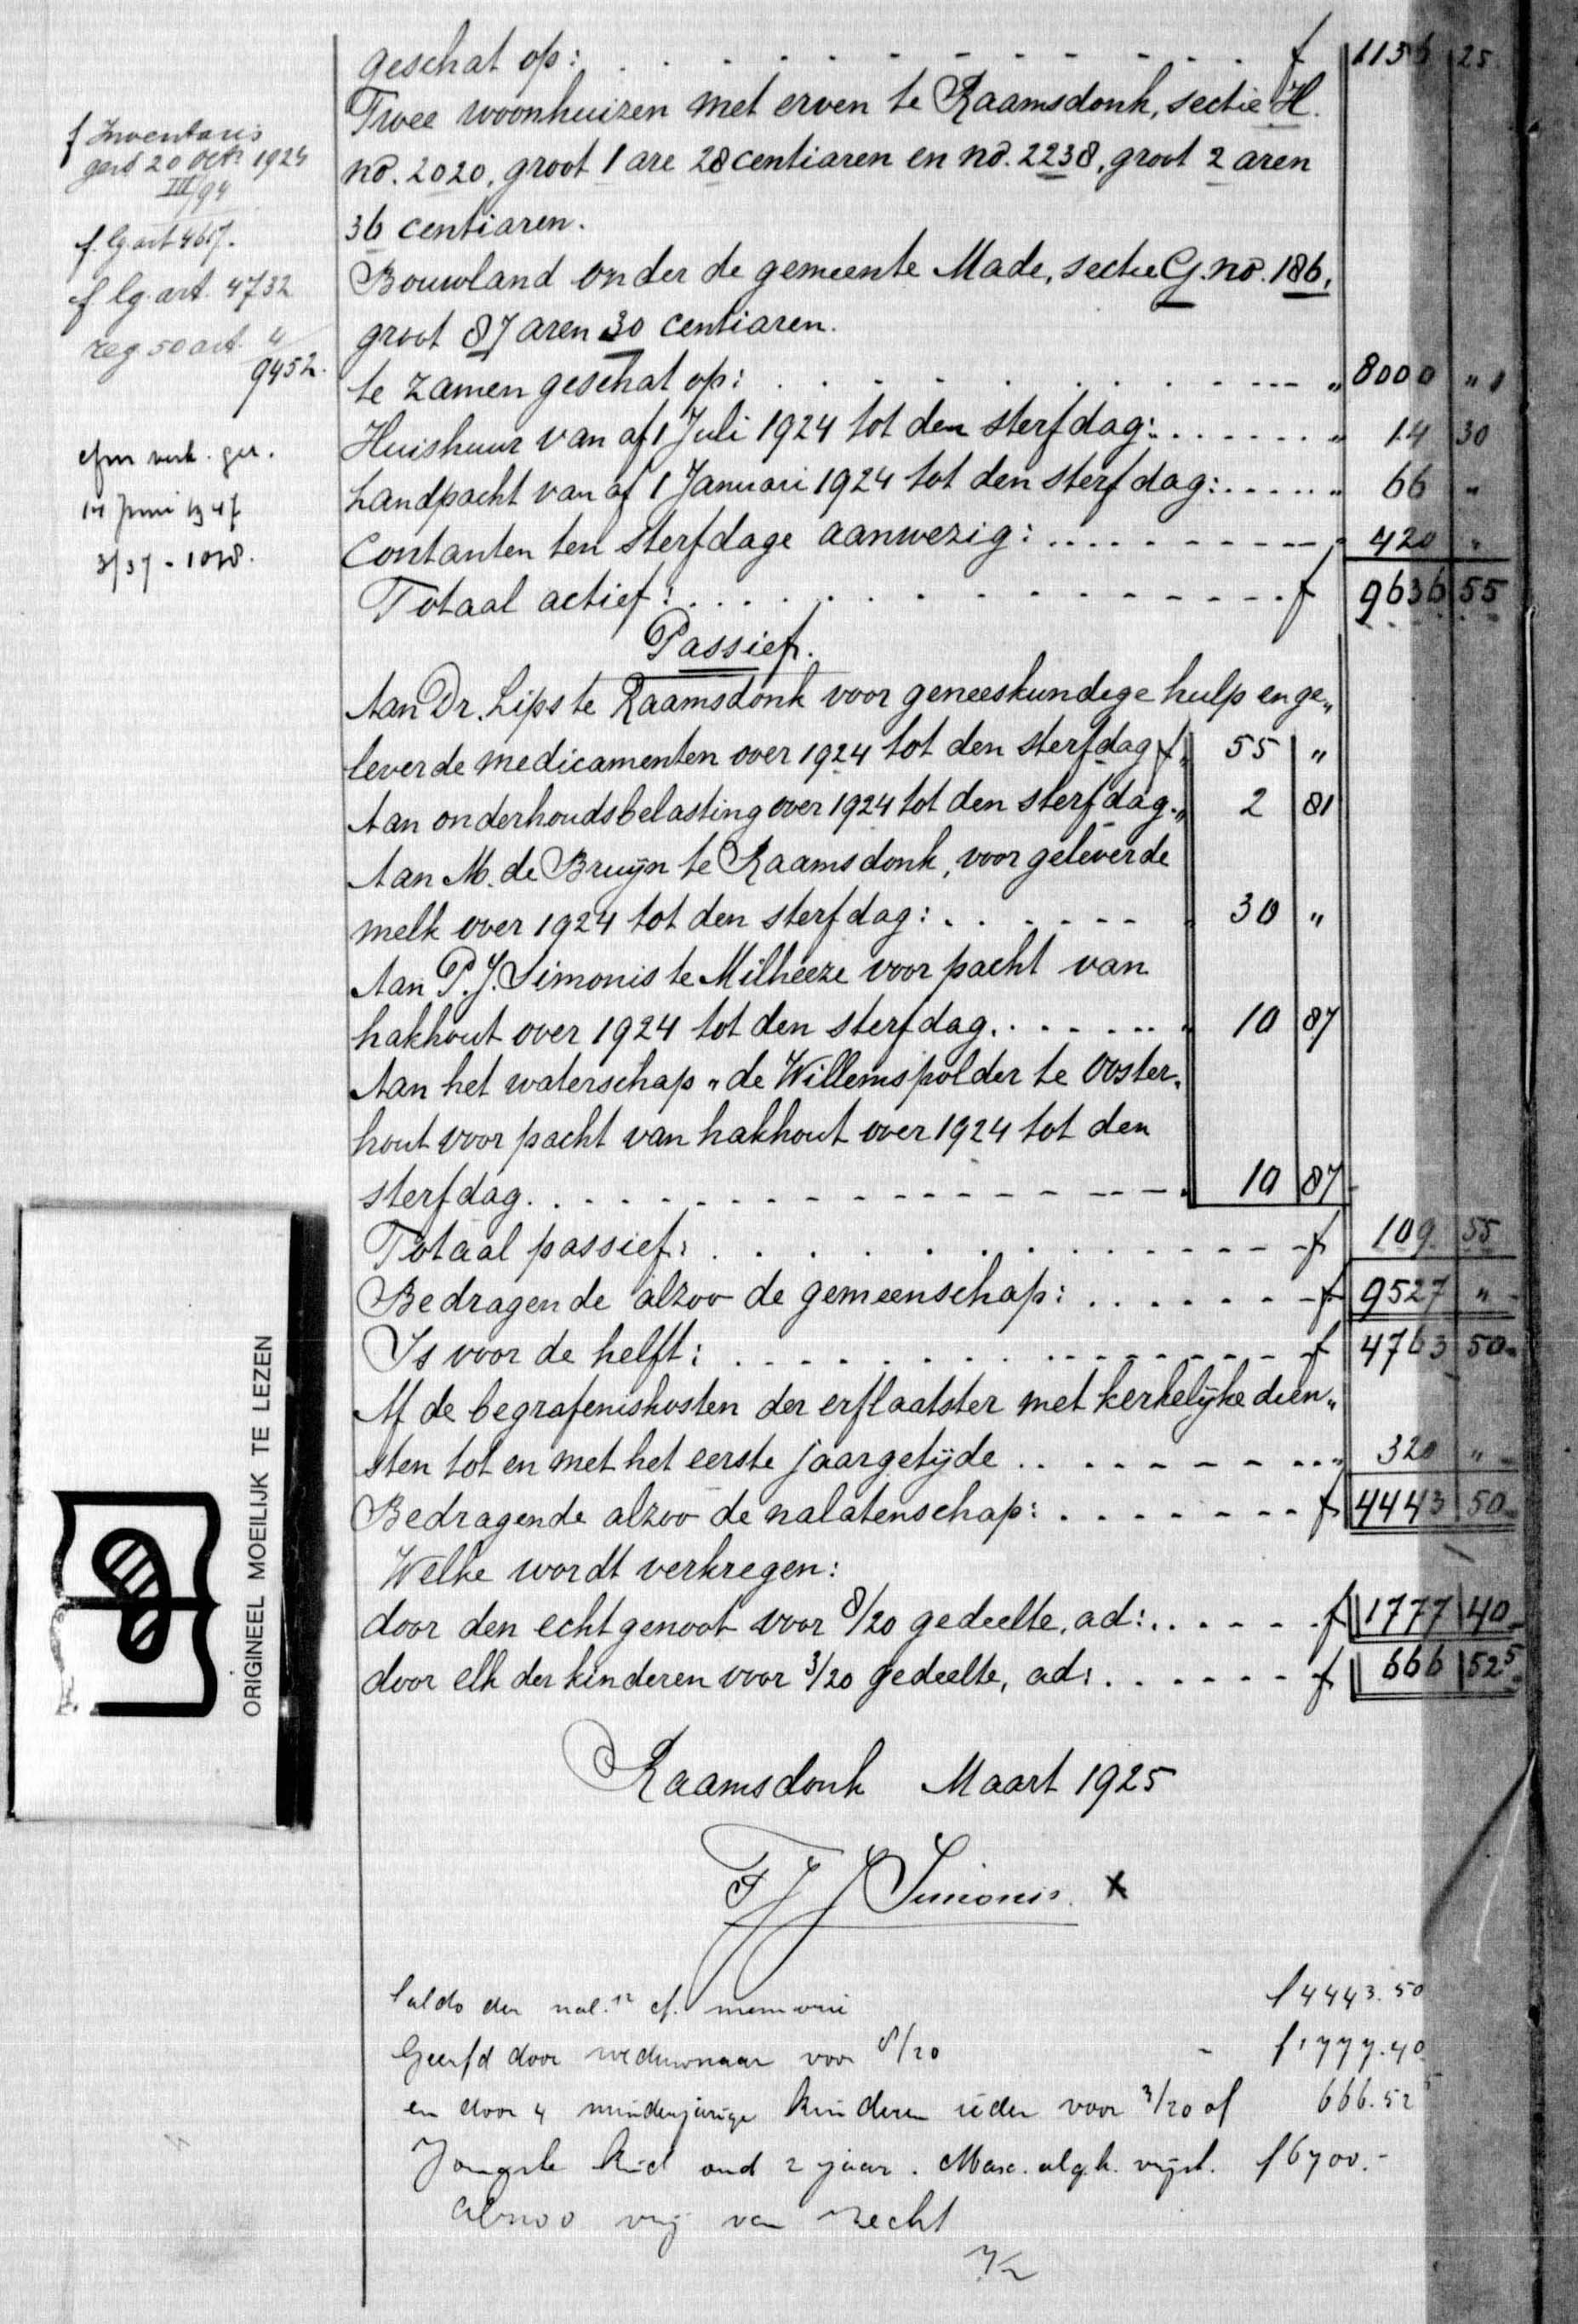 geschat op: . . . . . . . . . . . . f 1136 25
Twee woonhuizen met erven te Raamsdonk, sectie H.
no. 2020, groot 1 are 28 centiaren en no. 2238, groot 2 aren
36 centiaren.
Bouwland onder de gemeente Made, sectie G. no. 186,
groot 87 aren 30 centiaren.
te zamen geschat op: . . . . . . . . . . . . " 8000 "
Huishuur van af 1 Juli 1924 tot den sterfdag: . . . . . . " 14 30
Landpacht van af 1 Januari 1924 tot den sterfdag: . . . . . " 66 "
Contanten ten sterfdage aanwezig: . . . . . . . . . . " 420 "
Totaal actief: . . . . . . . . . . . . . f 9636 55
Passief.
Aan Dr. Lips te Raamsdonk voor geneeskundige hulp en ge„
leverde medicamenten over 1924 tot den sterfdag f 55 "
Aan onderhoudsbelasting over 1924 tot den sterfdag. " 2 81
Aan M. de Bruijn te Raamsdonk, voor geleverde
melk over 1924 tot den sterfdag: . . . . . . " 30 "
Aan P.J. Simonis te Milheeze voor pacht van
hakhout over 1924 tot den sterfdag. . . . . . . " 10 87
Aan het waterschap „de Willemspolder te Ooster„
hout voor pacht van hakhout over 1924 tot den
sterfdag. . . . . . . . . . . . . . " 10 87
Totaal passief: . . . . . . . . . . . . f 109 55
Bedragende alzoo de gemeenschap: . . . . . . . f 9527 "
Is voor de helft: . . . . . . . . . . . . f 4763 50
Af de begrafeniskosten der erflaatster met kerkelijke dien„
sten tot en met het eerste jaargetijde . . . . . . . . " 320 "
Bedragende alzoo de nalatenschap: . . . . . . . f 4443 50
Welke wordt verkregen:
door den echtgenoot voor 8/20 gedeelte, ad: . . . . . . f 1777 40
door elk der kinderen voor 3/20 gedeelte, ad: . . . . . . f 666 52⁵
Raamsdonk Maart 1925
F J J Simonis. x
Saldo der nal. cf. memorie f 4443.50
Geerfd door weduwnaar voor 8/20 - f 1777.40
en door 4 minderjarige kinderen ieder voor 3/20 of 666.52⁵
Jongste kind oud 2 jaar. Max. algh. vrijst. f 6700.-
alzoo vrij van recht
f Inventaris
ged 20 Oct 1924
III/94
f. lg art 4617.
f lg. art. 4732
reg 50 art. "
9452.
14 Juni 1947
3/37 - 1028.
ORIGINEEL MOEILIJK TE LEZEN